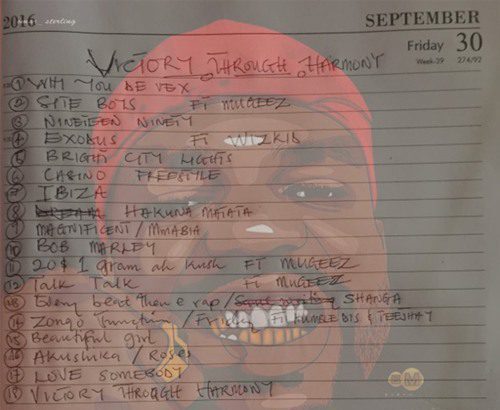 2016
sterling
SEPTEMBER
Friday 30
Week-39 274/92
VICTORY THROUGH HARMONY
1 WHY YOU DE VEX
2 SITE BOYS FT MUGEEZ
3 NINETEEN NINETY
4 EXODUS FT WIZKID
5 BRIGHT CITY LIGHTS
6 CASINO FREESTYLE
7 IBIZA
8 DREAM HAKUNA MATATA
9 MAGNIFICENT / MMABIA
10 BOB MARLEY
11 20$ 1 gram ah kush FT MUGEEZ
12 Talk Talk Ft MUGEEZ
13 Every beat then e rap / Song writing SHANGA
14 Zongo Junction / Ft HUMBLE DIS & TEEJHAY
15 Beautiful girl
16 Akushika / Roses
17 LOVE SOMEBODY
18 VICTORY THROUGH HARMONY